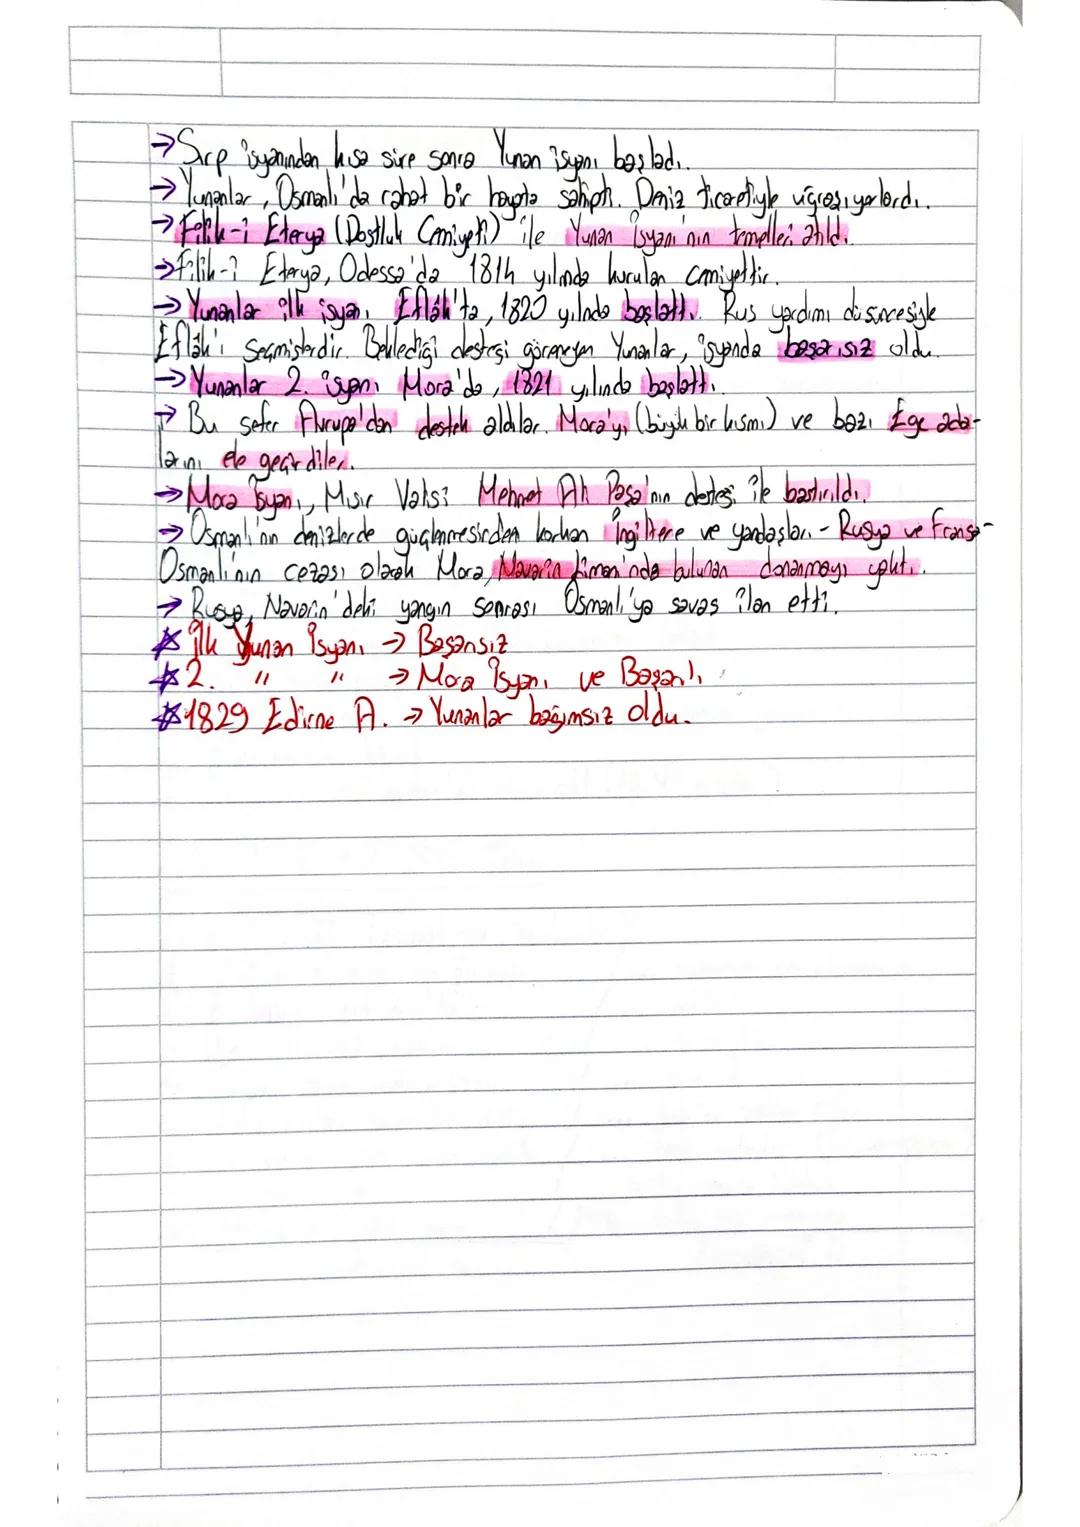 → Sırp isyanından kısa süre sonra Yunan isyanı başladı.
→ Yunanlar, Osmanlı'da rahat bir hayata sahipti. Deniz ticaretiyle uğraşıyorlardı.
→ Filik-i Eterya (Dostluk Cemiyeti) ile Yunan İsyanı'nın temelleri atıldı.
→ Filik-i Eterya, Odessa'da 1814 yılında kurulan cemiyettir.
→ Yunanlar ilk isyanı Eflâk'ta, 1820 yılında başlattı. Rus yardımı düşüncesiyle
Eflâk'ı seçmişlerdir. Beklediği desteği göremeyen Yunanlar, isyanda başarısız oldu.
→ Yunanlar 2. isyanı Mora'da, 1821 yılında başlattı.
→ Bu sefer Avrupa'dan destek aldılar. Mora'yı (büyük bir kısmı) ve bazı Ege ada-
larını ele geçirdiler.
→ Mora İsyanı, Mısır Valisi Mehmet Ali Paşa'nın desteği ile bastırıldı.
→ Osmanlı'nın denizlerde güçlenmesinden korkan İngiltere ve yandaşları - Rusya ve Fransa -
Osmanlı'nın cezası olarak Mora, Navarin Limanı'nda bulunan donanmayı yaktı.
→ Rusya, Navarin'deki yangın sonrası Osmanlı'ya savaş ilan etti.
☆ İlk Yunan İsyanı → Başarısız
☆ 2. " " → Mora İsyanı ve Başarılı
☆ 1829 Edirne A. → Yunanlar bağımsız oldu.